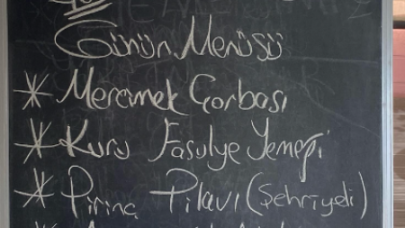 Günün Menüsü
* Mercimek Çorbası
* Kuru Fasulye Yemeği
* Pirinç Pilavı (Şehriyeli)